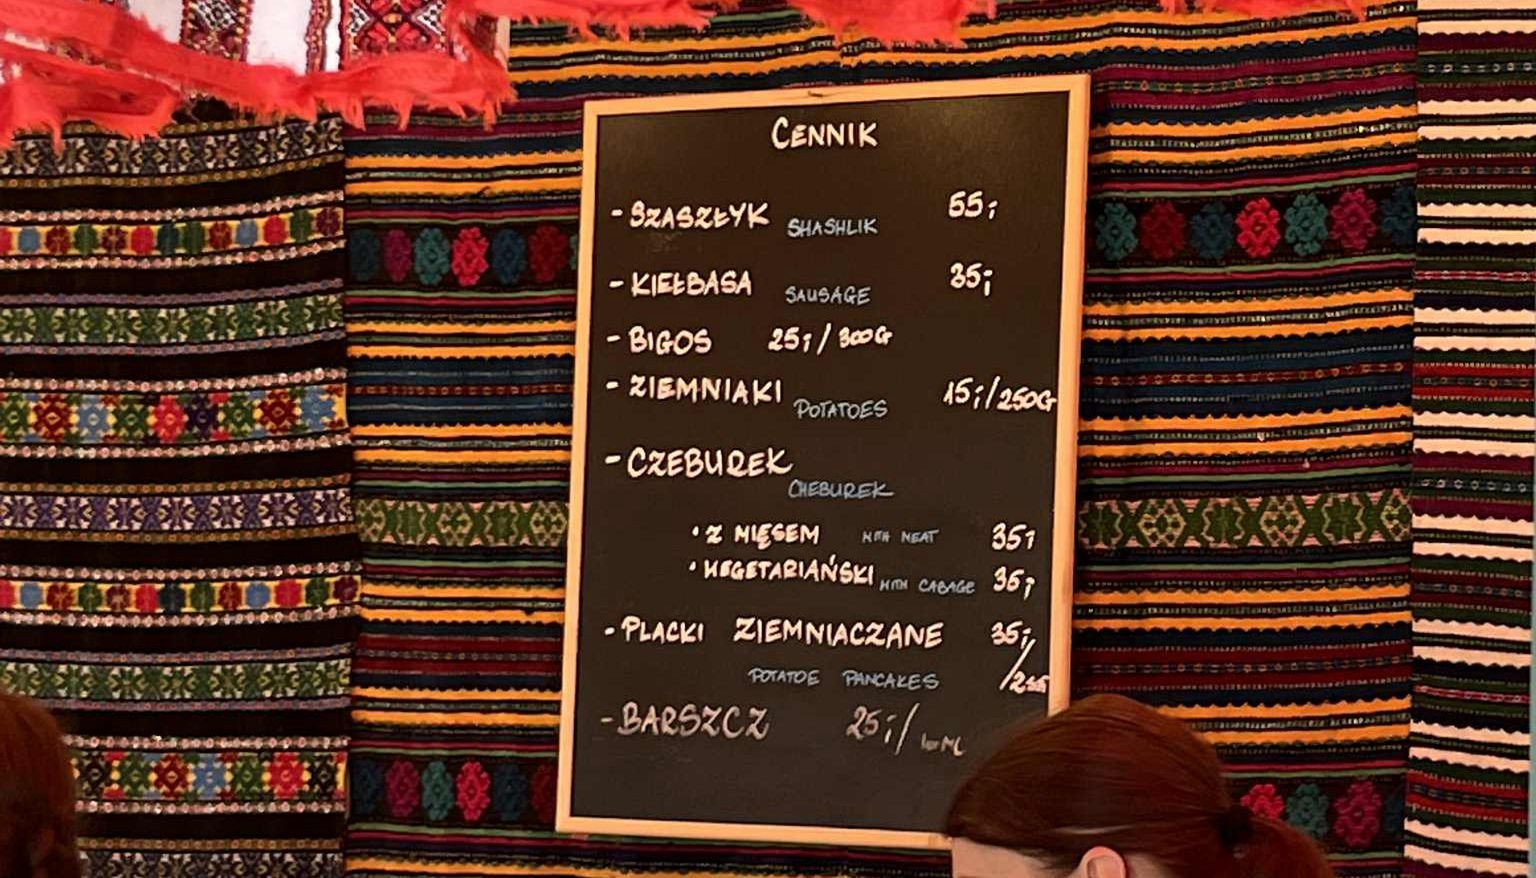 CENNIK
- SZASZŁYK SHASHLIK 55,-
- KIEŁBASA SAUSAGE 35,-
- BIGOS 25,-/300G
- ZIEMNIAKI POTATOES 15,-/250G
- CZEBUREK
CHEBUREK
• Z MIĘSEM WITH MEAT 35,-
• WEGETARIAŃSKI WITH CABAGE 35,-
- PLACKI ZIEMNIACZANE 35,-
POTATOE PANCAKES
- BARSZCZ 25,-/